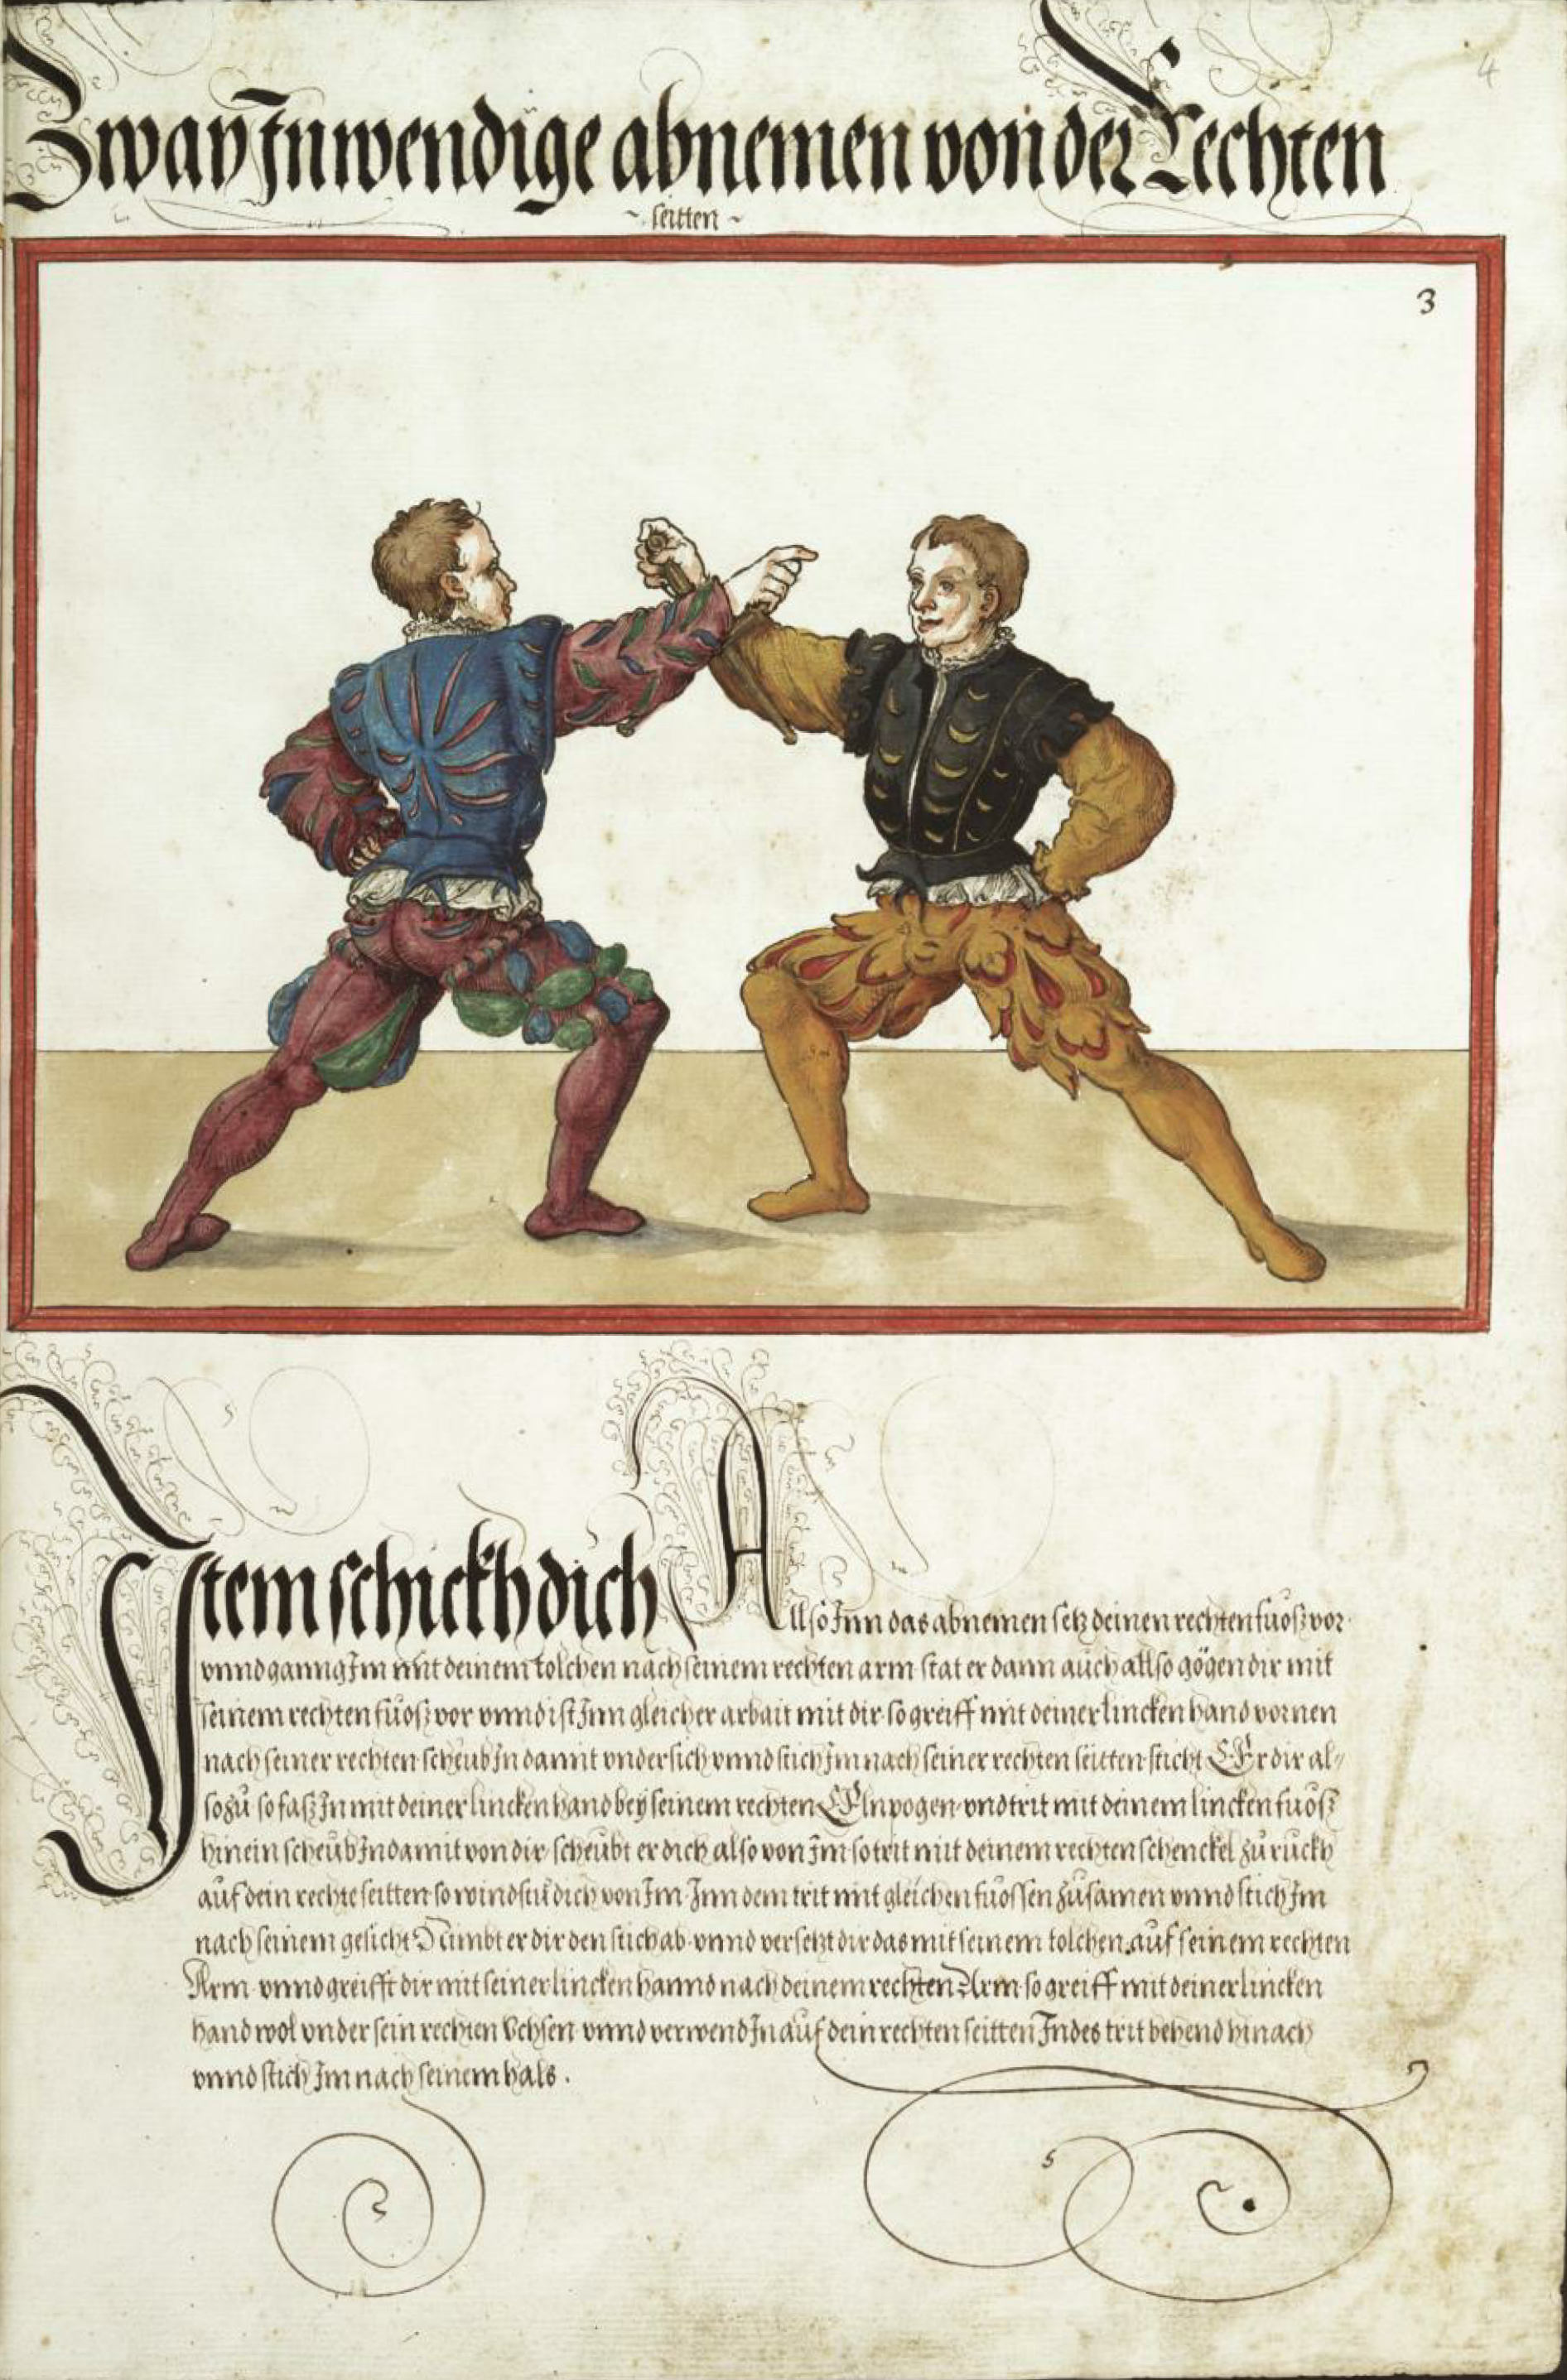 4
Zway Inwendige abnemen von der Rechten
~ seitten ~
3
Item schickh dich Allso Inn das abnemen setz deinen rechten fuͦosz vor
vnnd ganng Im mit deinem tolchen nach seinem rechten arm stat er dann auch allso gögen dir mit
seinem rechten fuͦosz vor vnnd ist Inn gleicher arbait mit dir so greiff mit deiner lincken hand vornen
nach seiner rechten scheub In damit vndersich vnnd stich Im nach seiner rechten seitten sticht Er dir al-
so zuͦ so fasz In mit deiner lincken hand bey seinem rechten Elnpogen vnd trit mit deinem lincken fuͦosz
hinein scheub In damit von dir scheubt er dich also von Im so trit mit deinem rechten schenckel zuͦ ruckh
auf dein rechte seitten so windstu dich von Im Inn dem trit mit gleichen fuͦossen zuͦsamen vnnd stich Im
nach seinem gesicht Nimbt er dir den stich ab vnnd versetzt dir das mit seinem tolchen auf seinem rechten
Arm vnnd greifft dir mit seiner lincken hannd nach deinem rechten Arm so greiff mit deiner lincken
hand wol vnder sein rechten Vchsen vnnd verwend In auf dein rechten seitten Indes trit behend hinach
vnnd stich Im nach seinem hals .